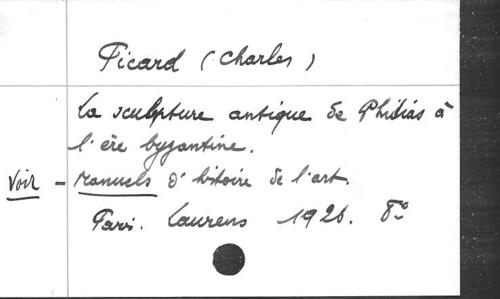 Picard (Charles)
La sculpture antique de Phidias à
l'ère byzantine.
Voir - Manuels d'histoire de l'art.
Paris. Laurens 1926. 8°